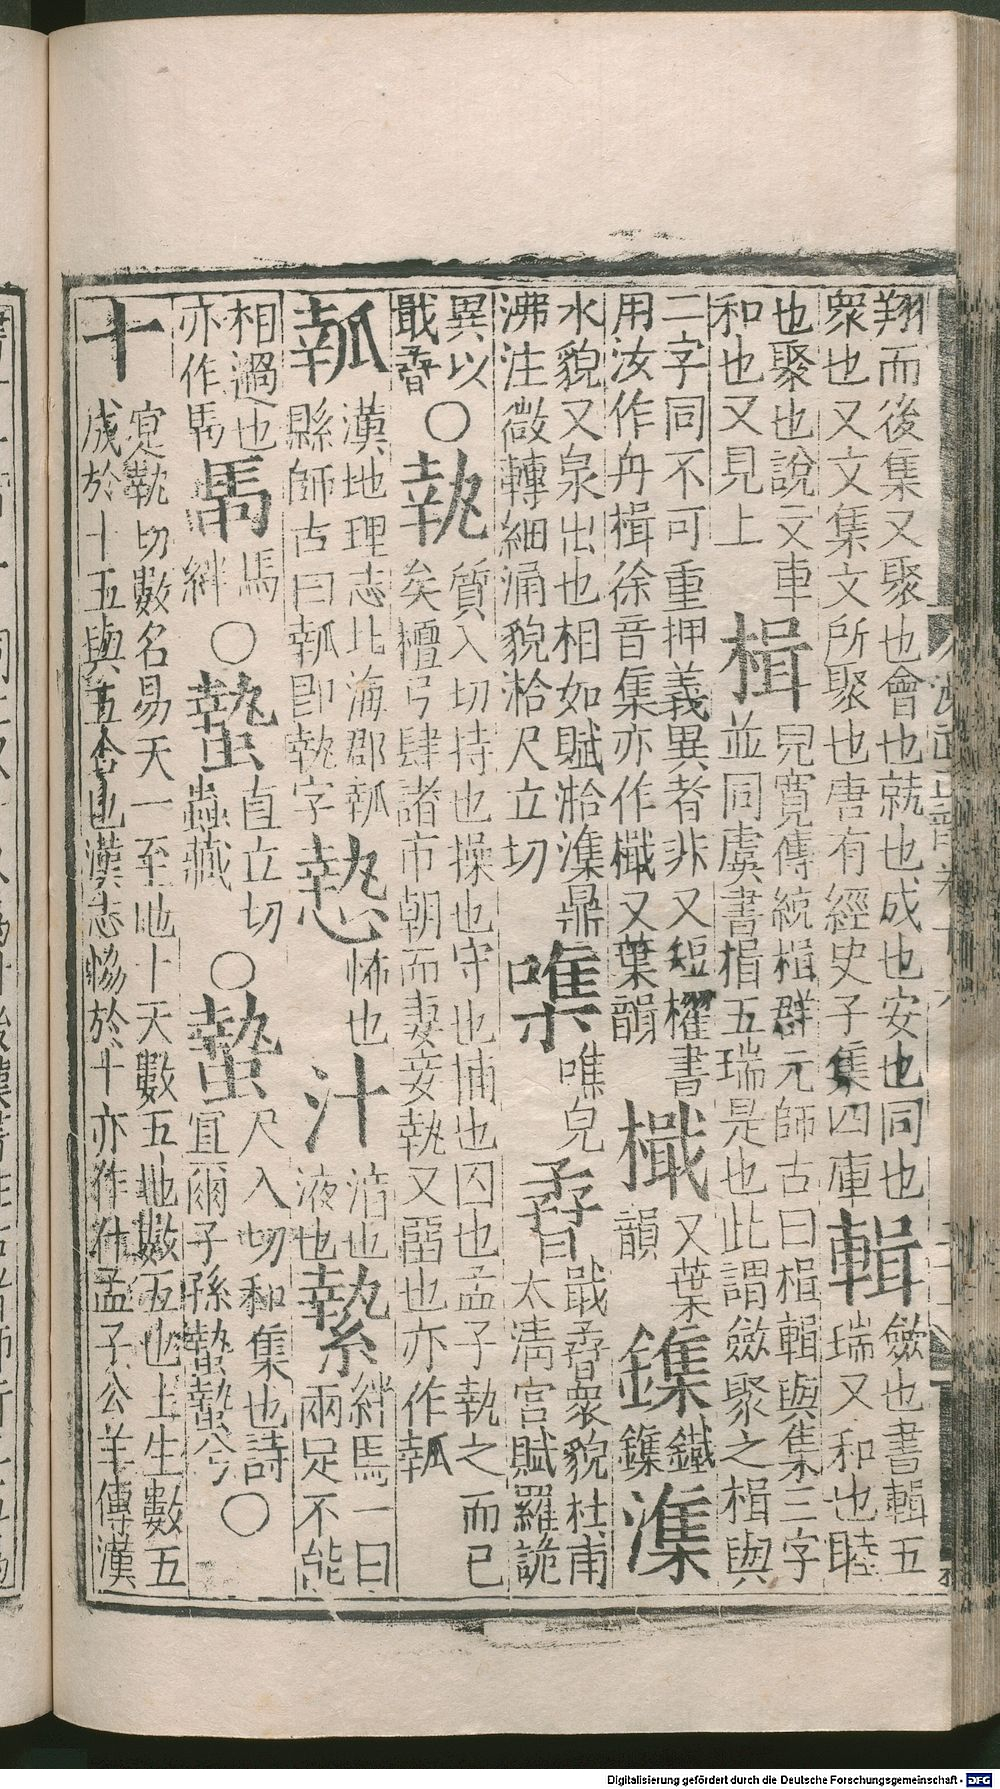 翔而後集又聚也會也就也成也安也同也
衆也又文集文所聚也唐有經史子集四庫
輯
斂也書輯五
瑞又和也睦
也聚也說文車
和也又見上
楫
兒寬傳統楫群元師古曰楫輯與集三字
並同虞書楫五瑞是也此謂斂聚之楫與
二字同不可重押義異者非又短櫂書
用汝作舟楫徐音集亦作檝又葉韻
檝
又葉
韻
鏶
鐵
鏶
潗
水貌又泉出也相如賦湁潗鼎
沸注微轉細涌貌湁尺立切
噍
噍皃
孴
戢孴衆貌杜甫
太清宮賦羅詭
異以
戢孴
〇
執
質入切持也操也守也捕也囚也孟子執之而已
矣檀弓肆諸市朝而妻妾執又罶也亦作執
瓡
漢地理志北海郡瓡
縣師古曰瓡卽執字
慹
怖也
汁
渧也
液也
縶
絆馬一曰
兩足不能
相過也
亦作馬
馬
馬
絆
〇
蟄
直立切
蟲藏
〇
蟄
尺入切和集也詩
宜爾子孫蟄蟄兮
〇
十
寔執切數名易天一至地十天數五地數五也上生數五
成於十五與五合也漢志協於十亦作什孟子公羊傳漢
Digitalisierung gefördert durch die Deutsche Forschungsgemeinschaft - DFG